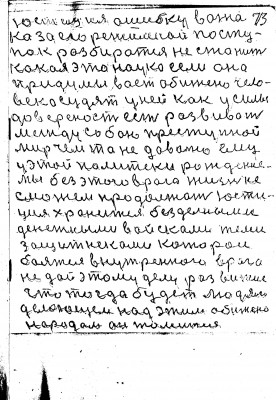 юстиция ошибку вожа 73
ка зделе режимной посту-
пок розбиратся не станит
какая это науко если она
придумывает обижено чело-
века судят у ней как усилы
доверености ест розвиват
между собою преступной
мир чем та не довожо ему
у этой политики рождение-
мы без этого врага жизне
сможем продолжат юсти-
ция хранится безделными
денежными войсками теми
защитнеками которои
боятся внутренного врага
не дай этому делу розвитие
что тогда будет людям
делоющем над этим обижено
народом он томится